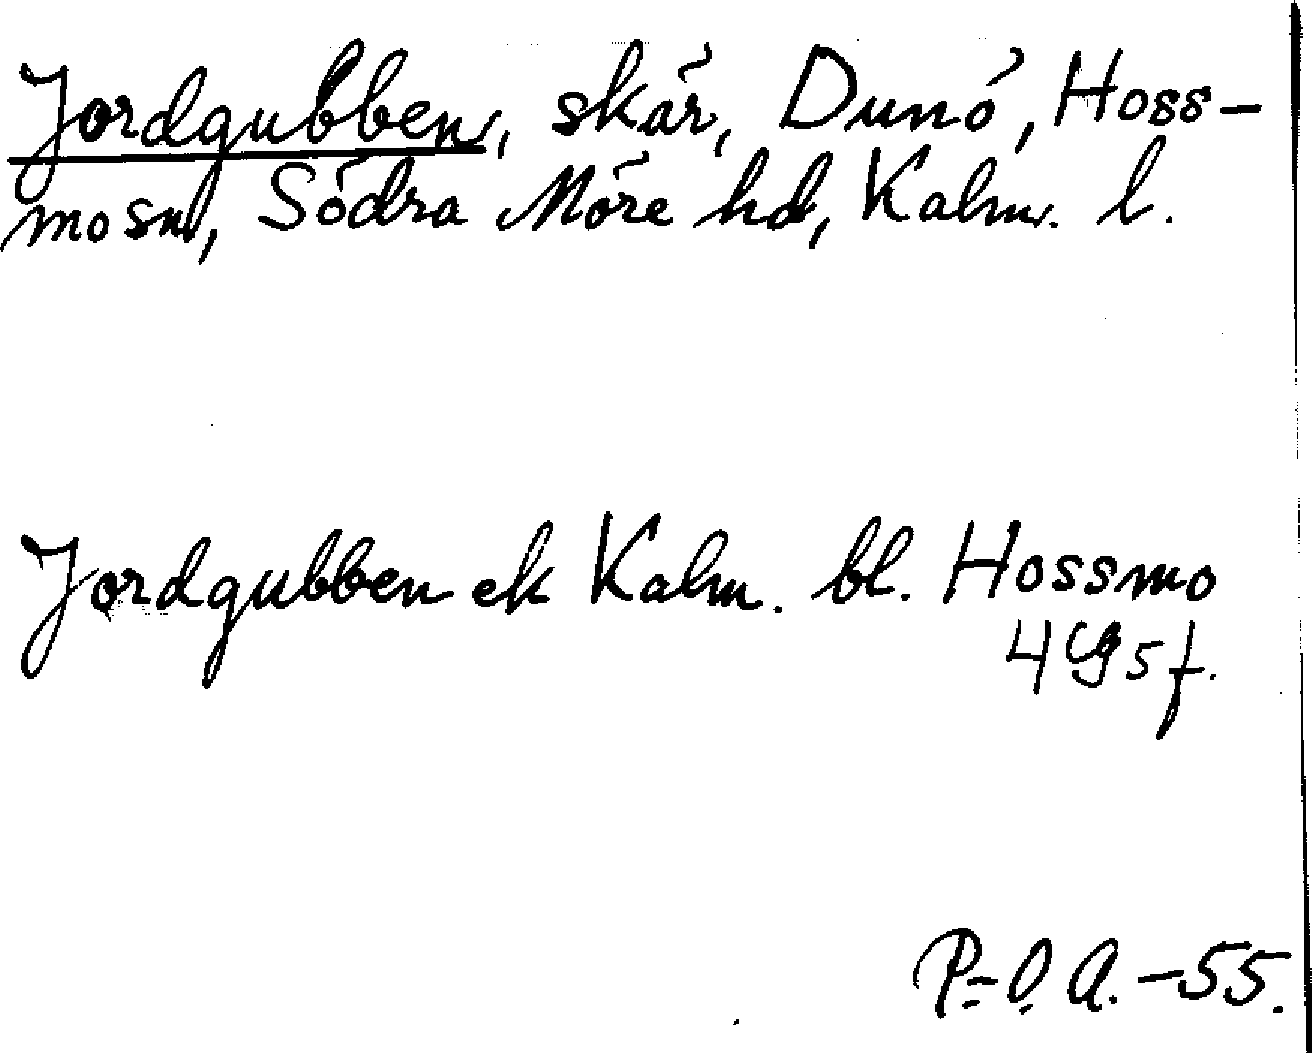 Jordgubben, skär, Dunö, Hoss-
mo sn, Södra Möre hd, Kalm. l.
Jordgubben ek Kalm. bl. Hossmo
4 g 5 f.
P.-O. A. -55.